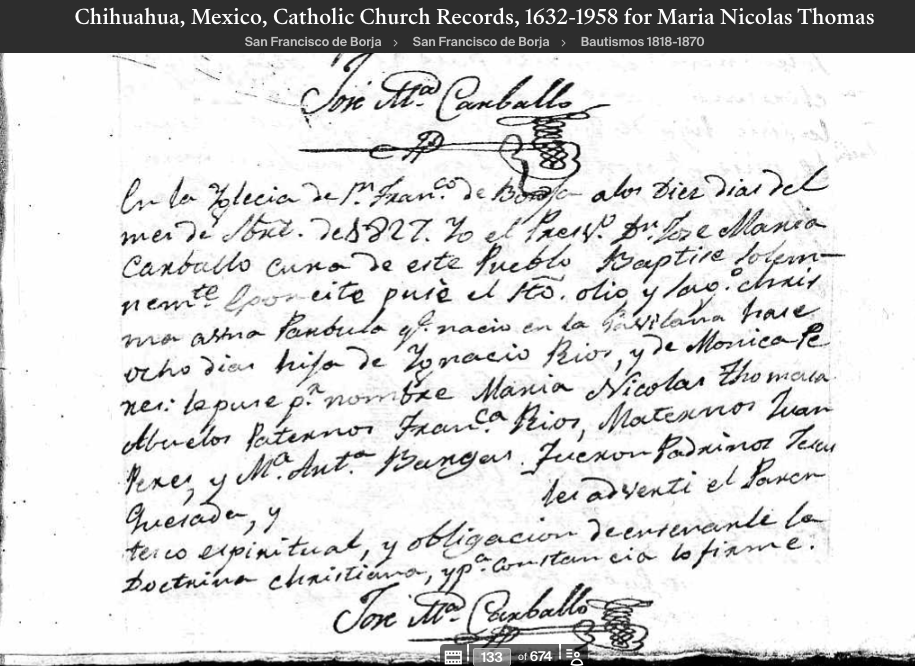 Chihuahua, Mexico, Catholic Church Records, 1632-1958 for Maria Nicolas Thomas
San Francisco de Borja › San Francisco de Borja › Bautismos 1818-1870
Jose Ma. Carballo
En la Yglecia de Sn. Franco. de Borja alos Diez dias del
mes de Abrl. de 1827. Yo el Presvo. Dn. Jose Maria
Carballo cura de este Pueblo Baptise solem-
nemte. puse el Sto. olio, y sago. chris
ma auna Parbula qe. nacio en la Gavilana hase
ocho dias hija de Ygnacio Rios, y de Monica Pe
res: le puse pr. nombre Maria Nicolas Thomasa
Abuelos Paternos Franca. Rios, Maternos Juan
Peres, y Ma. Anta. Bargas. Fueron Padrinos Jesus
Quesada, y les adverti el Paren
tesco espiritual, y obligacion de ensenarle la
Doctrina christiana, y pa. constancia lo firme.
Jose Ma. Carballo
133 of 674